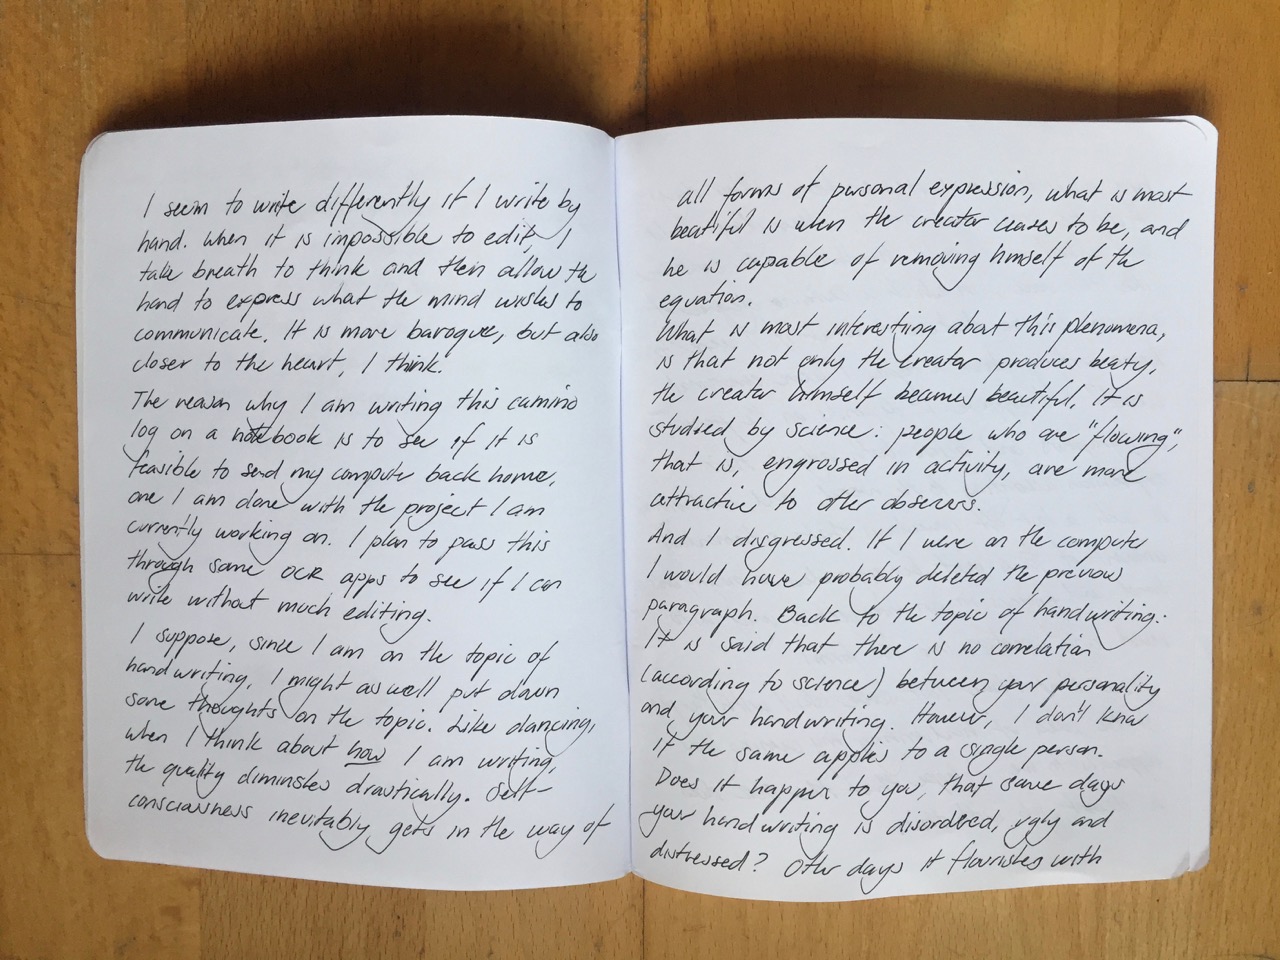 I seem to write differently if I write by
hand. When it is impossible to edit, I
take breath to think and then allow the
hand to express what the mind wishes to
communicate. It is more baroque, but also
closer to the heart, I think.
The reason why I am writing this camino
log on a notebook is to see if it is
feasible to send my computer back home,
one I am done with the project I am
currently working on. I plan to pass this
through some OCR apps to see if I can
write without much editing.
I suppose, since I am on the topic of
handwriting, I might as well put down
some thoughts on the topic. Like dancing,
when I think about how I am writing,
the quality diminshes drastically. Self-
consciousness inevitably gets in the way of
all forms of personal expression, what is most
beautiful is when the creator ceases to be, and
he is capable of removing himself of the
equation.
What is most interesting about this phenomena,
is that not only the creator produces beaty,
the creator himself becomes beautiful. It is
studied by science: people who are "flowing",
that is, engrossed in activity, are more
attractive to other observers.
And I disgressed. If I were on the computer
I would have probably deleted the previous
paragraph. Back to the topic of handwriting:
It is said that there is no correlation
(according to science) between your personality
and your handwriting. However, I don't know
if the same applies to a single person.
Does it happen to you, that some days
your handwriting is disordered, ugly and
distressed? Other days it flourishes with